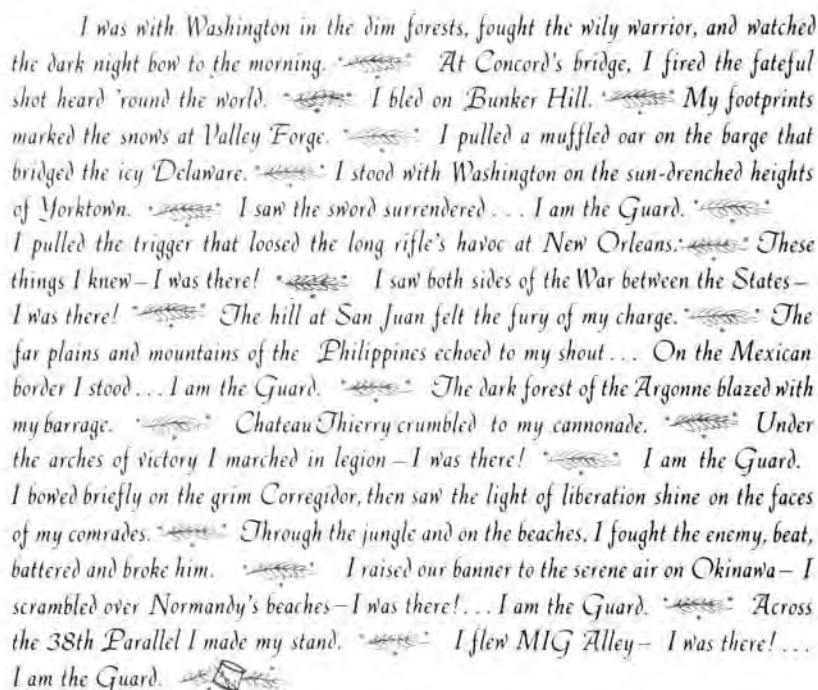 I was with Washington in the dim forests, fought the wily warrior, and watched
the dark night bow to the morning. At Concord's bridge, I fired the fateful
shot heard 'round the world. I bled on Bunker Hill. My footprints
marked the snows at Valley Forge. I pulled a muffled oar on the barge that
bridged the icy Delaware. I stood with Washington on the sun-drenched heights
of Yorktown. I saw the sword surrendered... I am the Guard.
I pulled the trigger that loosed the long rifle's havoc at New Orleans. These
things I knew—I was there! I saw both sides of the War between the States—
I was there! The hill at San Juan felt the fury of my charge. The
far plains and mountains of the Philippines echoed to my shout... On the Mexican
border I stood...I am the Guard. The dark forest of the Argonne blazed with
my barrage. Chateau Thierry crumbled to my cannonade. Under
the arches of victory I marched in legion—I was there! I am the Guard.
I bowed briefly on the grim Corregidor, then saw the light of liberation shine on the faces
of my comrades. Through the jungle and on the beaches, I fought the enemy, beat,
battered and broke him. I raised our banner to the serene air on Okinawa—I
scrambled over Normandy's beaches—I was there!...I am the Guard. Across
the 38th Parallel I made my stand. I flew MIG Alley—I was there!...
I am the Guard.